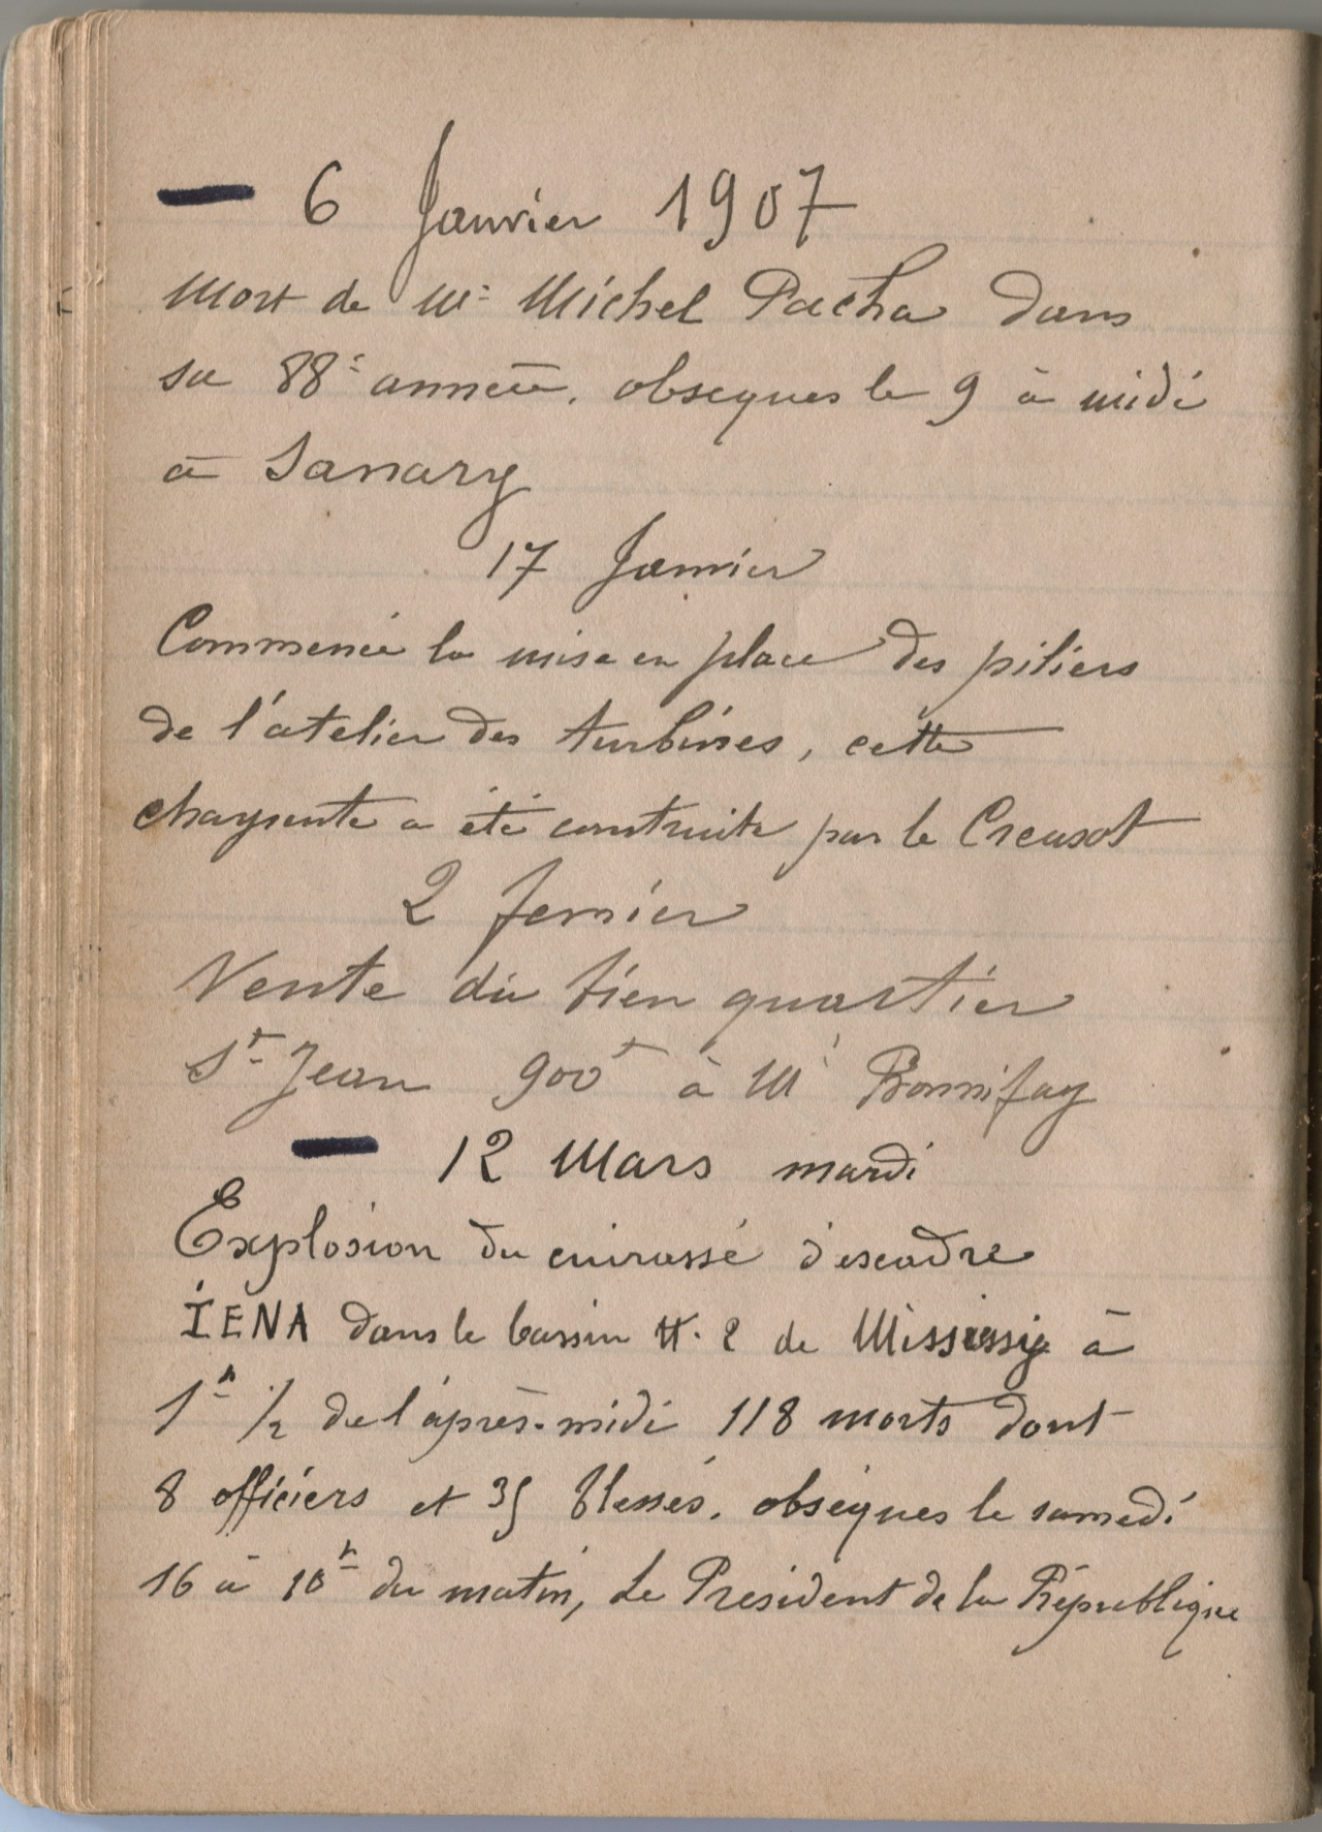 — 6 Janvier 1907
Mort de Mr Michel Pacha dans
sa 88e année. obseques le 9 à midi
à Sanary
17 Janvier
Commencé la mise en place des piliers
de l'atelier des turbines, cette
charpente a été construite par le Creusot
2 fevrier
Vente du bien quartier
St Jean 900f à Mr Bonnifay
— 12 Mars mardi
Explosion du cuirassé d'escadre
IENA dans le bassin N. 2 de Missiessy à
1h 1/2 de l'après-midi 118 morts dont
8 officiers et 35 blessés. obsèques le samedi
16 à 10h du matin, Le President de la République